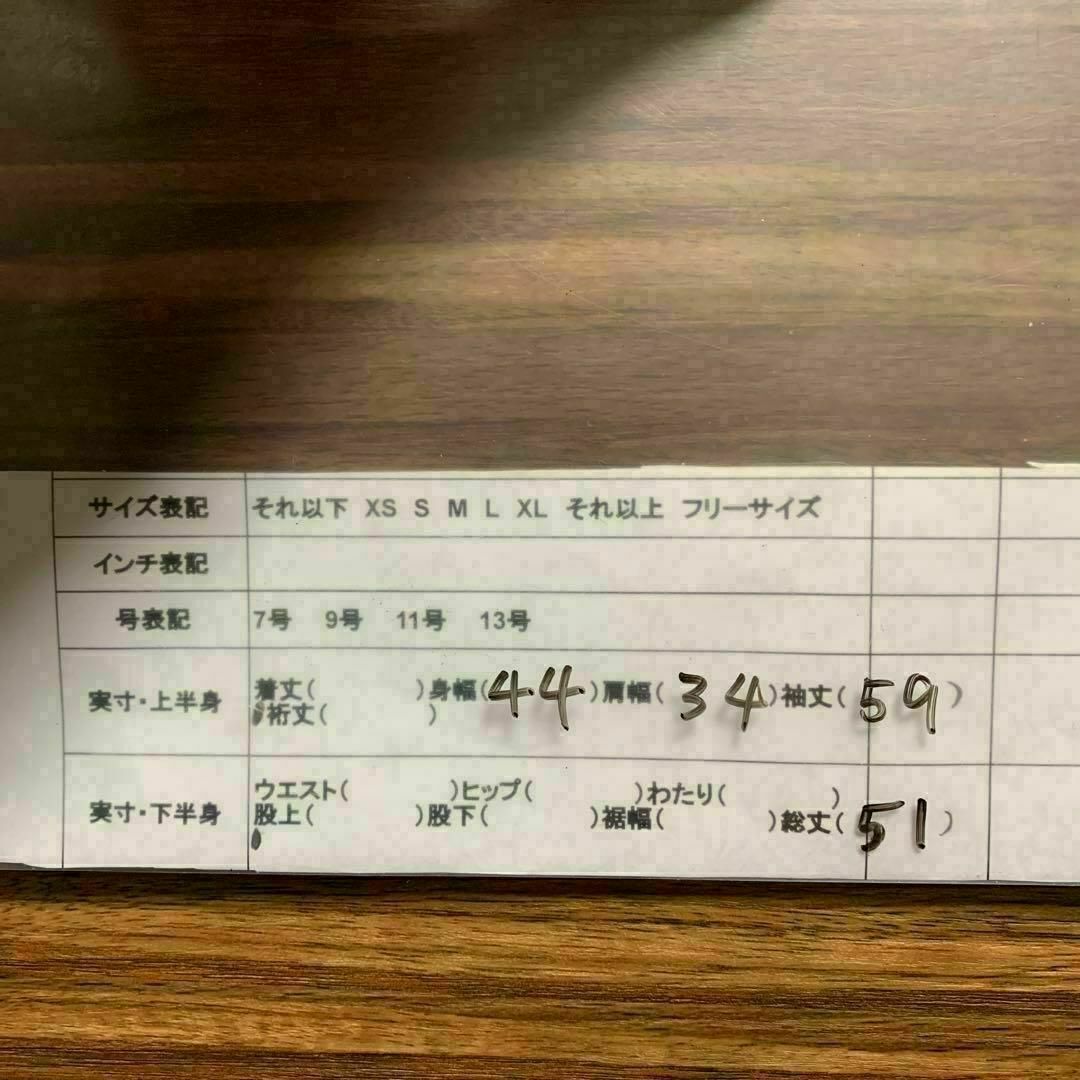 サイズ表記 それ以下 XS S M L XL それ以上 フリーサイズ
インチ表記
号表記 7号 9号 11号 13号
実寸・上半身 着丈( )身幅(44)肩幅(34)袖丈(59)
裄丈( )
実寸・下半身 ウエスト( )ヒップ( )わたり( )
股上( )股下( )裾幅( )総丈(51)